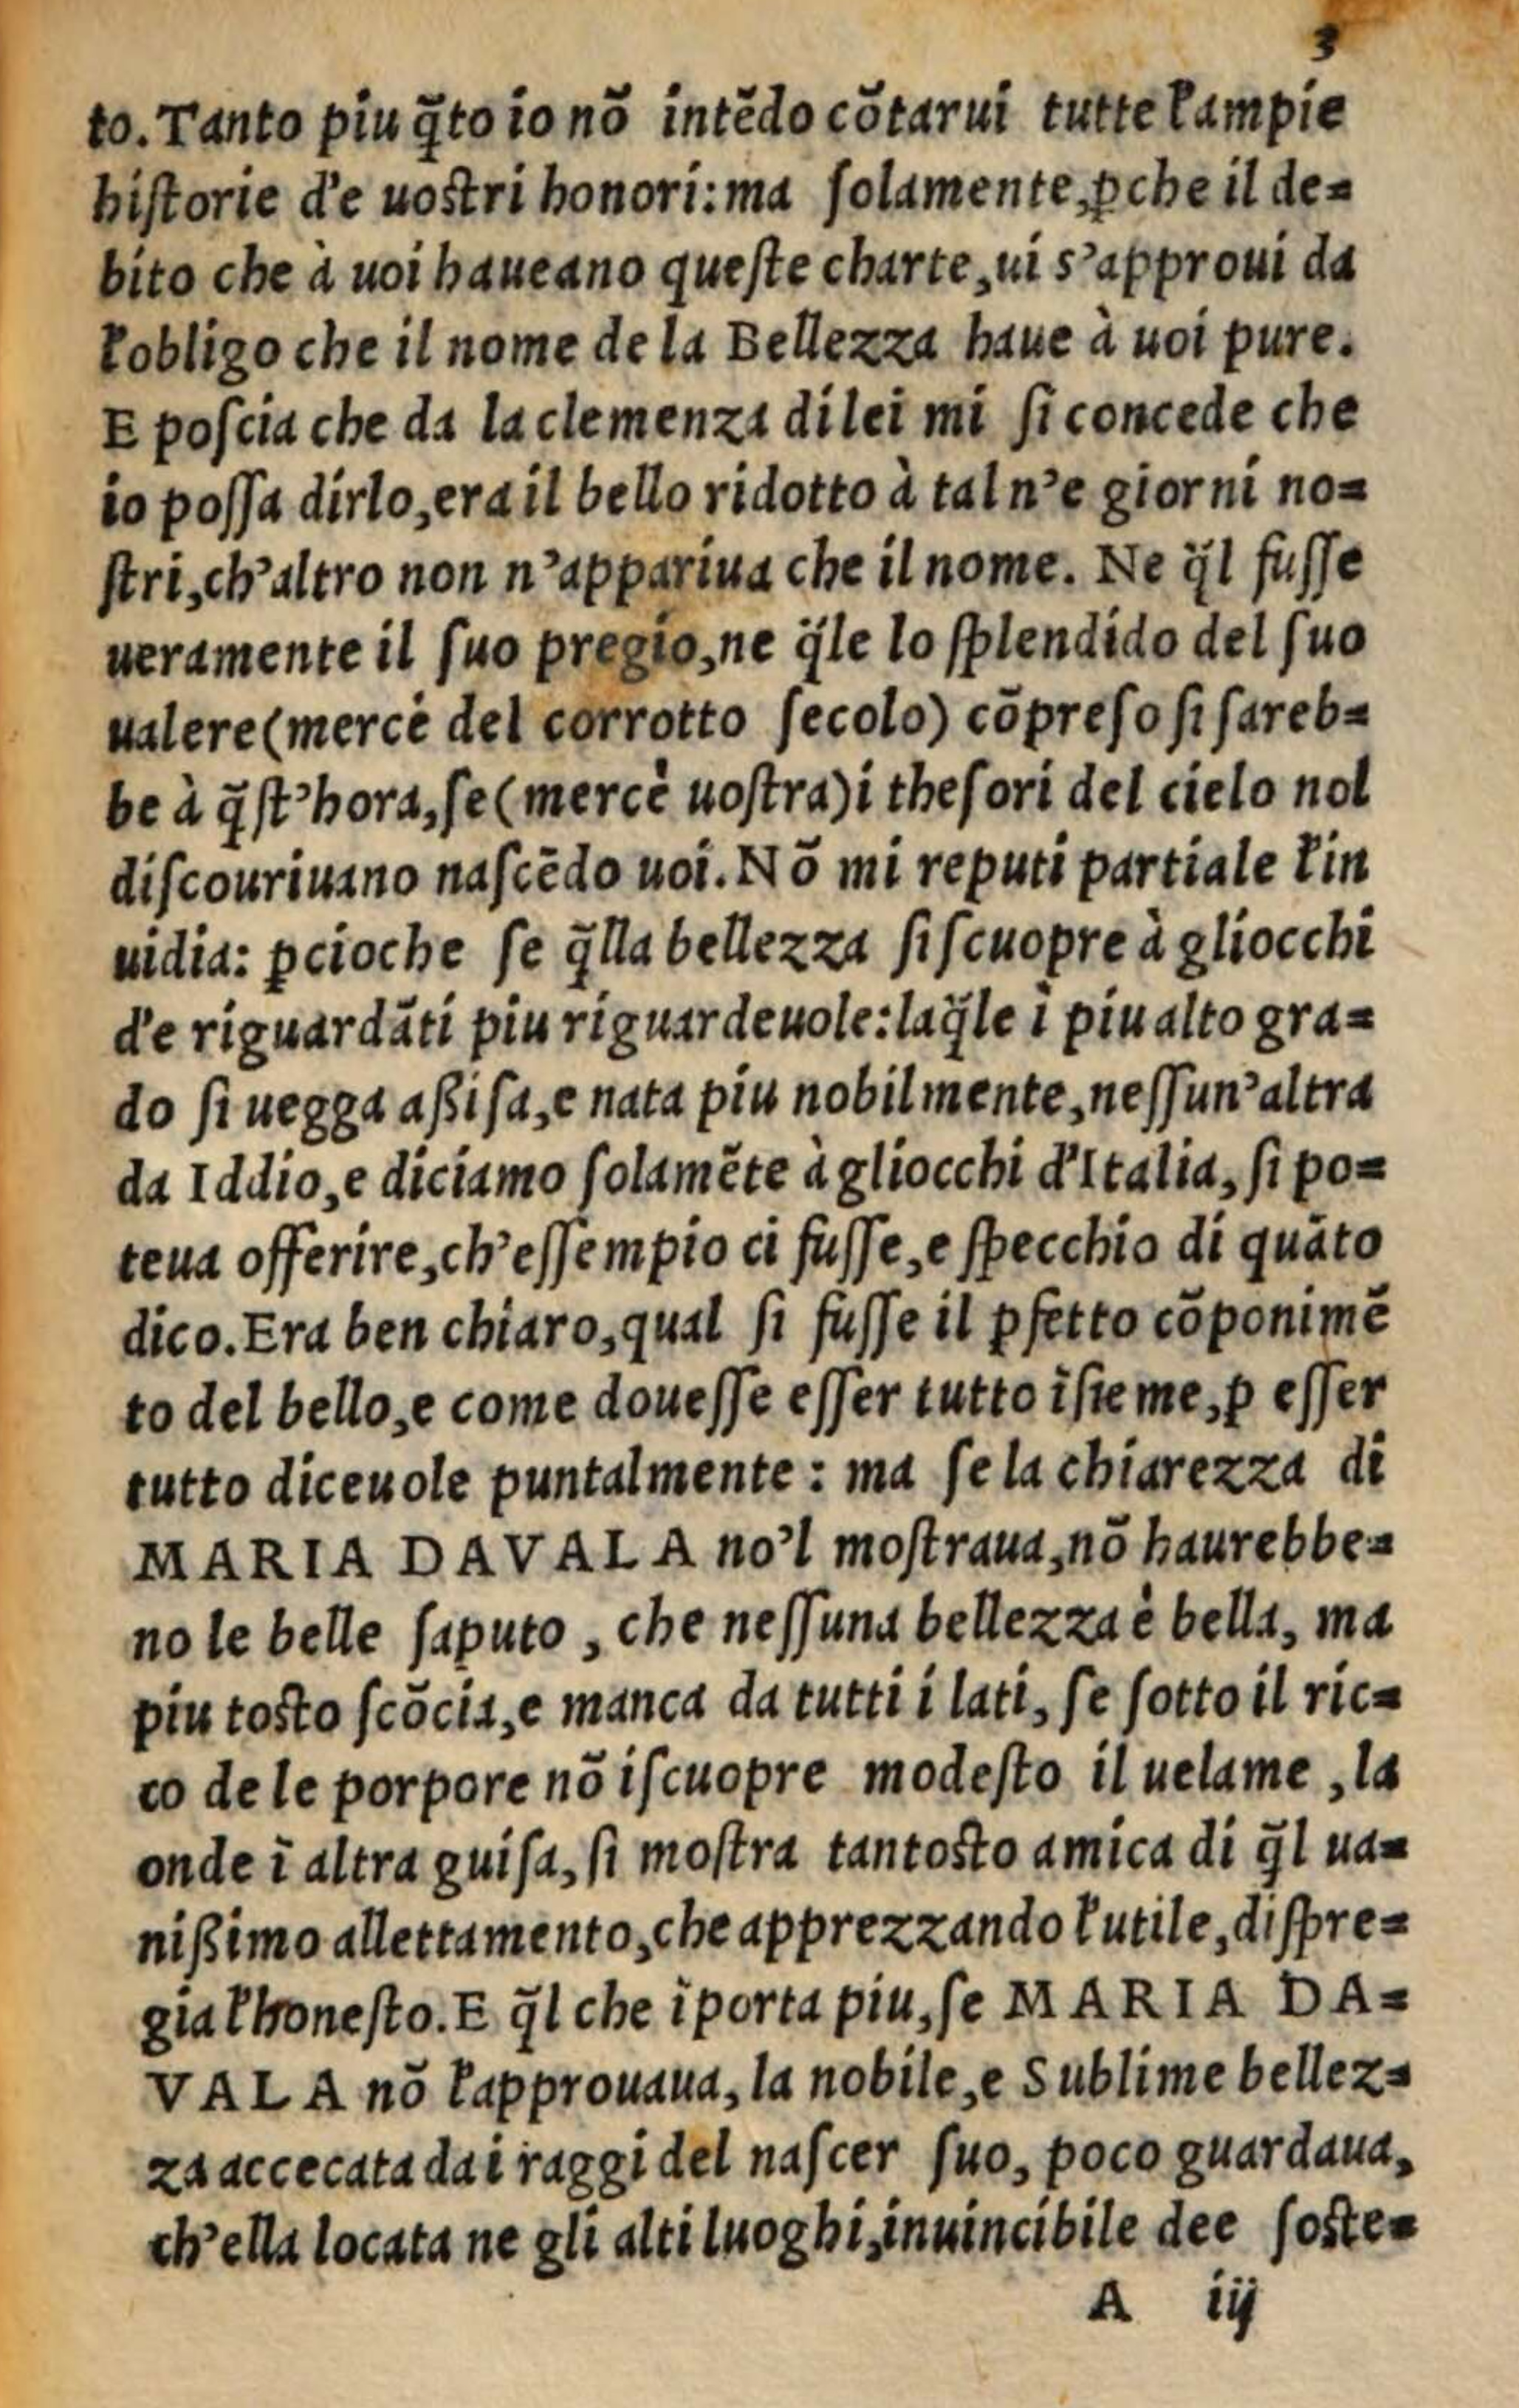 3
to. Tanto piu q̃to io nõ intẽdo cõtarui tutte l'ampie
hiſtorie d'e uoſtri honori: ma ſolamente, ꝑche il de=
bito che à uoi haueano queſte charte, ui s'approui da
l'obligo che il nome de la Bellezza haue à uoi pure.
E poſcia che da la clemenza di lei mi ſi concede che
io poſſa dirlo, era il bello ridotto à tal n'e giorni no=
ſtri, ch'altro non n'appariua che il nome. Ne q̃l fuſſe
ueramente il ſuo pregio, ne q̃le lo ſplendido del ſuo
ualere (mercè del corrotto ſecolo) cõpreſo ſi ſareb=
be à q̃ſt'hora, ſe (mercè uoſtra) i theſori del cielo nol
diſcouriuano naſcẽdo uoi. Nõ mi reputi partiale l'in
uidia: ꝑcioche ſe q̃lla bellezza ſi ſcuopre à gliocchi
d'e riguardãti piu riguardeuole: laq̃le ĩ piu alto gra=
do ſi uegga aßiſa, e nata piu nobilmente, neſſun'altra
da Iddio, e diciamo ſolamẽte à gliocchi d'Italia, ſi po=
teua offerire, ch'eſſempio ci fuſſe, e ſpecchio di quãto
dico. Era ben chiaro, qual ſi fuſſe il ꝑfetto cõponimẽ
to del bello, e come doueſſe eſſer tutto ĩſieme, ꝑ eſſer
tutto diceuole puntalmente: ma ſe la chiarezza di
MARIA DAVALA no'l moſtraua, nõ haurebbe=
no le belle ſaputo, che neſſuna bellezza è bella, ma
piu toſto ſcõcia, e manca da tutti i lati, ſe ſotto il ric=
co de le porpore nõ iſcuopre modeſto il uelame, la
onde ĩ altra guiſa, ſi moſtra tantoſto amica di q̃l ua=
nißimo allettamento, che apprezzando l'utile, diſpre=
gia l'honeſto. E q̃l che ĩporta piu, ſe MARIA DA=
VALA nõ l'approuaua, la nobile, e Sublime bellez=
za accecata da i raggi del naſcer ſuo, poco guardaua,
ch'ella locata ne gli alti luoghi, inuincibile dee ſoſte=
A iij